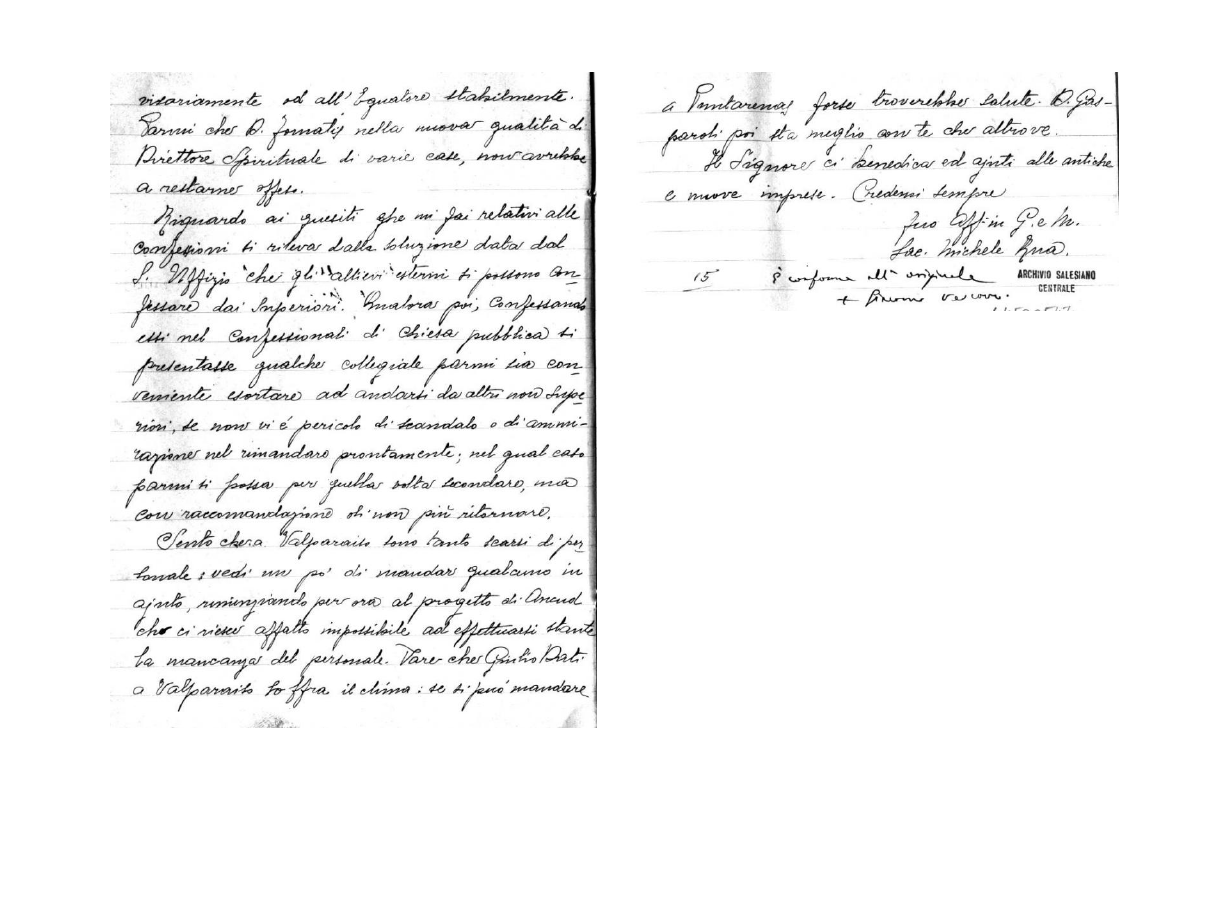 visoriamente od all'Equatore stabilmente.
Parmi che D. Tomatis nella nuova qualità di
Direttore Spirituale di varie case, non avrebbe
a restarne offeso.
Riguardo ai quesiti che mi fai relativi alle
confessioni si rileva dalla soluzione data dal
S. Uffizio "che gli" "allievi" esterni si possono con-
fessare dai Superiori. Qualora poi, confessando
essi nel Confessionali di Chiesa pubblica si
presentasse qualche collegiale parmi sia con-
veniente esortare ad andarsi da altri non Supe-
riori, se non vi é pericolo di scandalo o di ammi-
razione nel rimandare prontamente; nel qual caso
parmi si possa per quella volta secondare, ma
con raccomandazione di non più ritornare.
Sento che a Valparaiso sono tanto scarsi di per-
sonale; vedi un po' di mandar qualcuno in
ajuto, rinunziando per ora al progetto di Ancud
che ci riesce affatto impossibile ad effettuarsi stante
la mancanza del personale. Pare che Giulio Dati
a Valparaiso soffra il clima: se si può mandare
a Puntarenas forse troverebbe salute. D. Gas-
paroli poi sta meglio con te che altrove.
Il Signore ci benedica ed ajuti alle antiche
e nuove imprese. Credemi sempre
Tuo Aff. in G. e M.
Sac. Michele Rua.
15 È conforme all'originale
+ Giacomo vescovo.
ARCHIVIO SALESIANO
CENTRALE